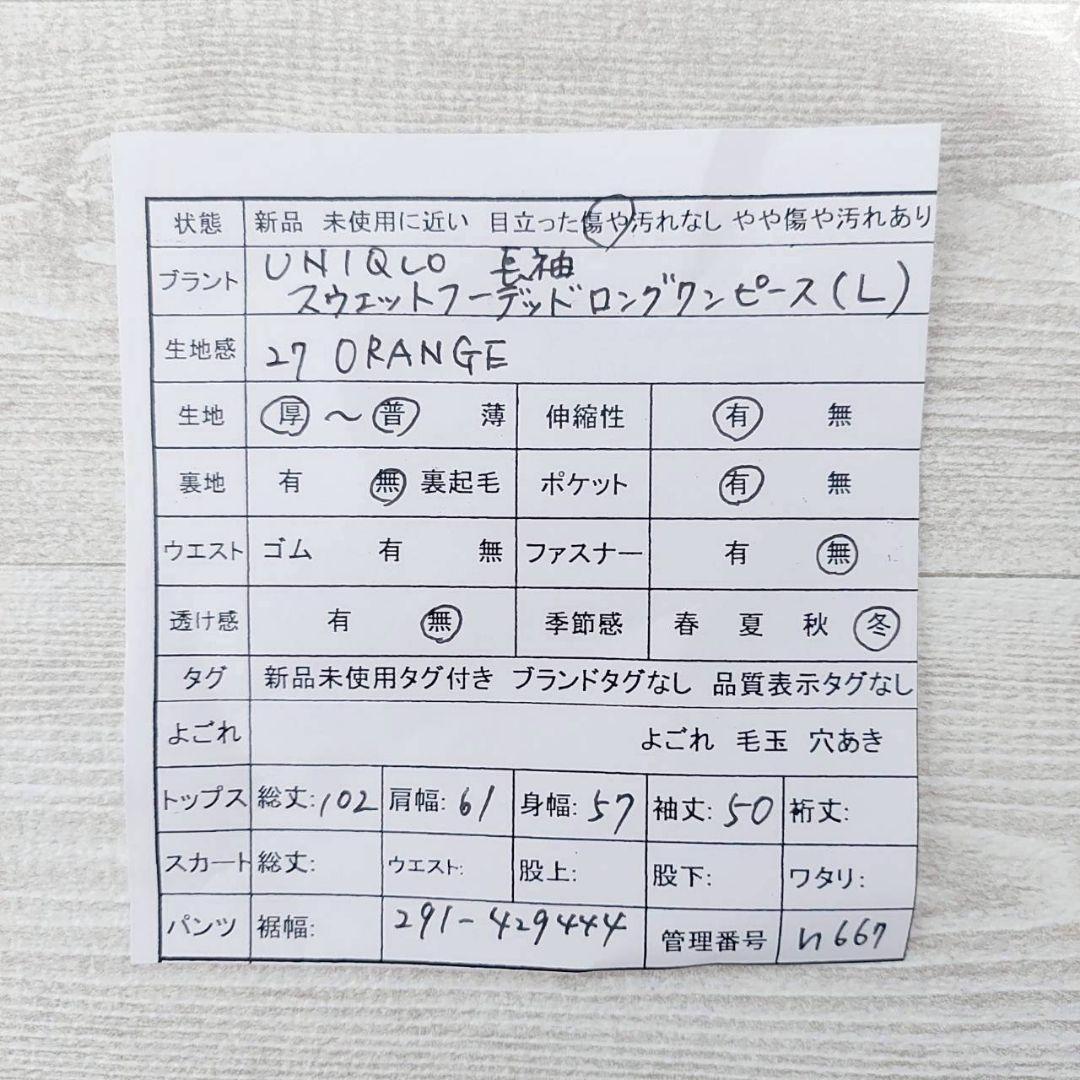 状態 新品 未使用に近い 目立った傷や汚れなし やや傷や汚れあり
ブラント UNIQLO 長袖
スウェットフーデッドロングワンピース(L)
生地感 27 ORANGE
生地 厚 〜 普 薄 伸縮性 有 無
裏地 有 無 裏起毛 ポケット 有 無
ウエスト ゴム 有 無 ファスナー 有 無
透け感 有 無 季節感 春 夏 秋 冬
タグ 新品未使用タグ付き ブランドタグなし 品質表示タグなし
よごれ よごれ 毛玉 穴あき
トップス 総丈:102 肩幅:61 身幅:57 袖丈:50 裄丈:
スカート 総丈: ウエスト: 股上: 股下: ワタリ:
パンツ 裾幅: 291-429444 管理番号 n667